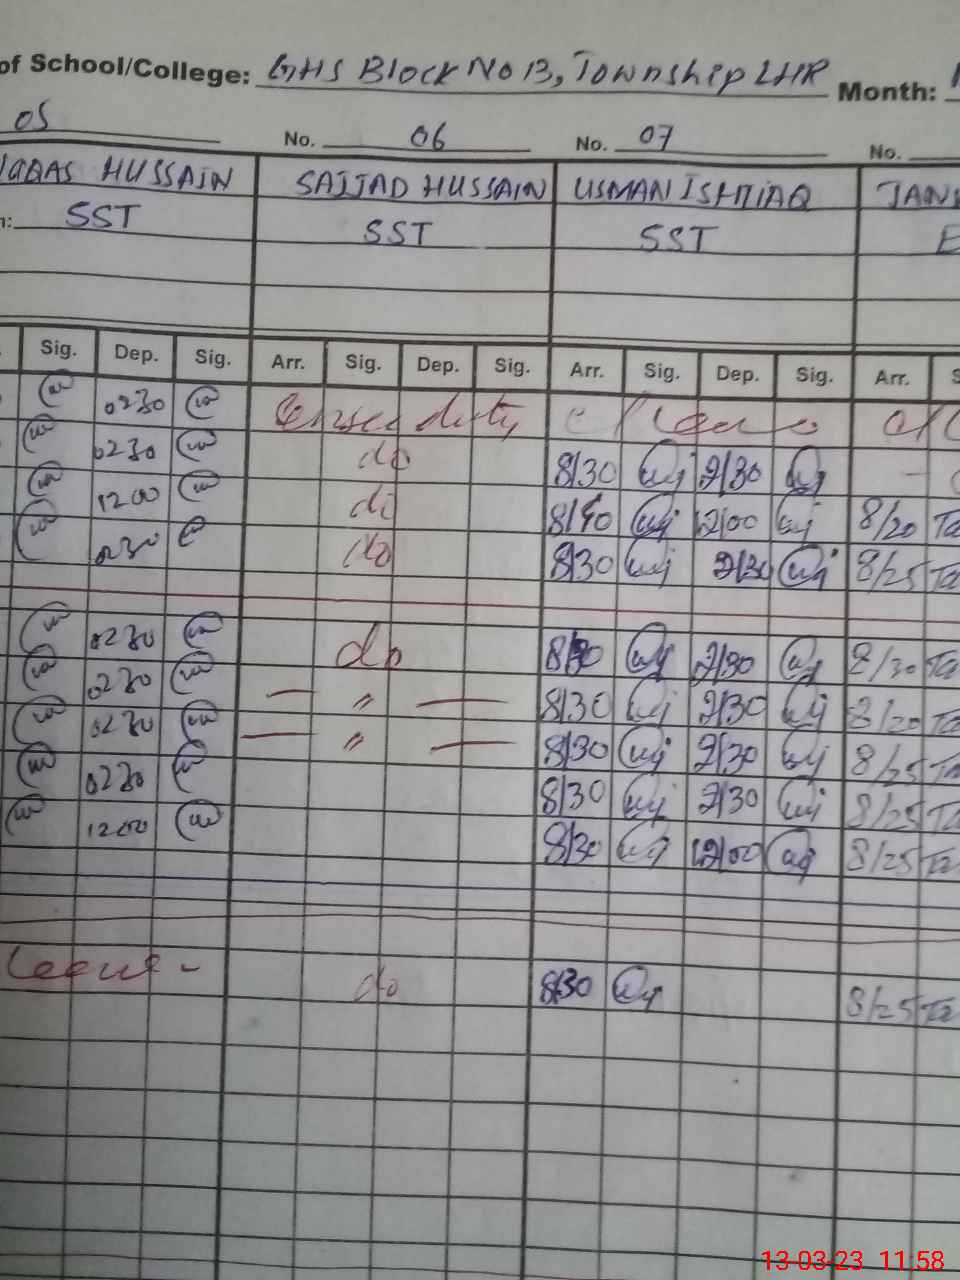 of School/College: GHS Block No 13, Township LHR Month:
05 No. 06 No. 07 No.
HUSSAIN SAJJAD HUSSAIN USMAN ISHTIAQ
SST SST SST
Sig. Dep. Sig. Arr. Sig. Dep. Sig. Arr. Sig. Dep. Sig. Arr.
0230 Census duty c/leave
0230 do 8/30 2/30
1200 do 8/40 12/00 8/20 Ta
0230 do 8/30 2/30 8/25 Ta
0230 do 8/30 2/30 8/30 Ta
0230 — " — 8/30 2/30 8/20 Ta
0230 — " — 8/30 2/30 8/25 Ta
0230 8/30 2/30 8/25 Ta
1200 8/30 12/00 8/25 Ta
Leave - do 8/30 8/25 Ta
13-03-23 11:58